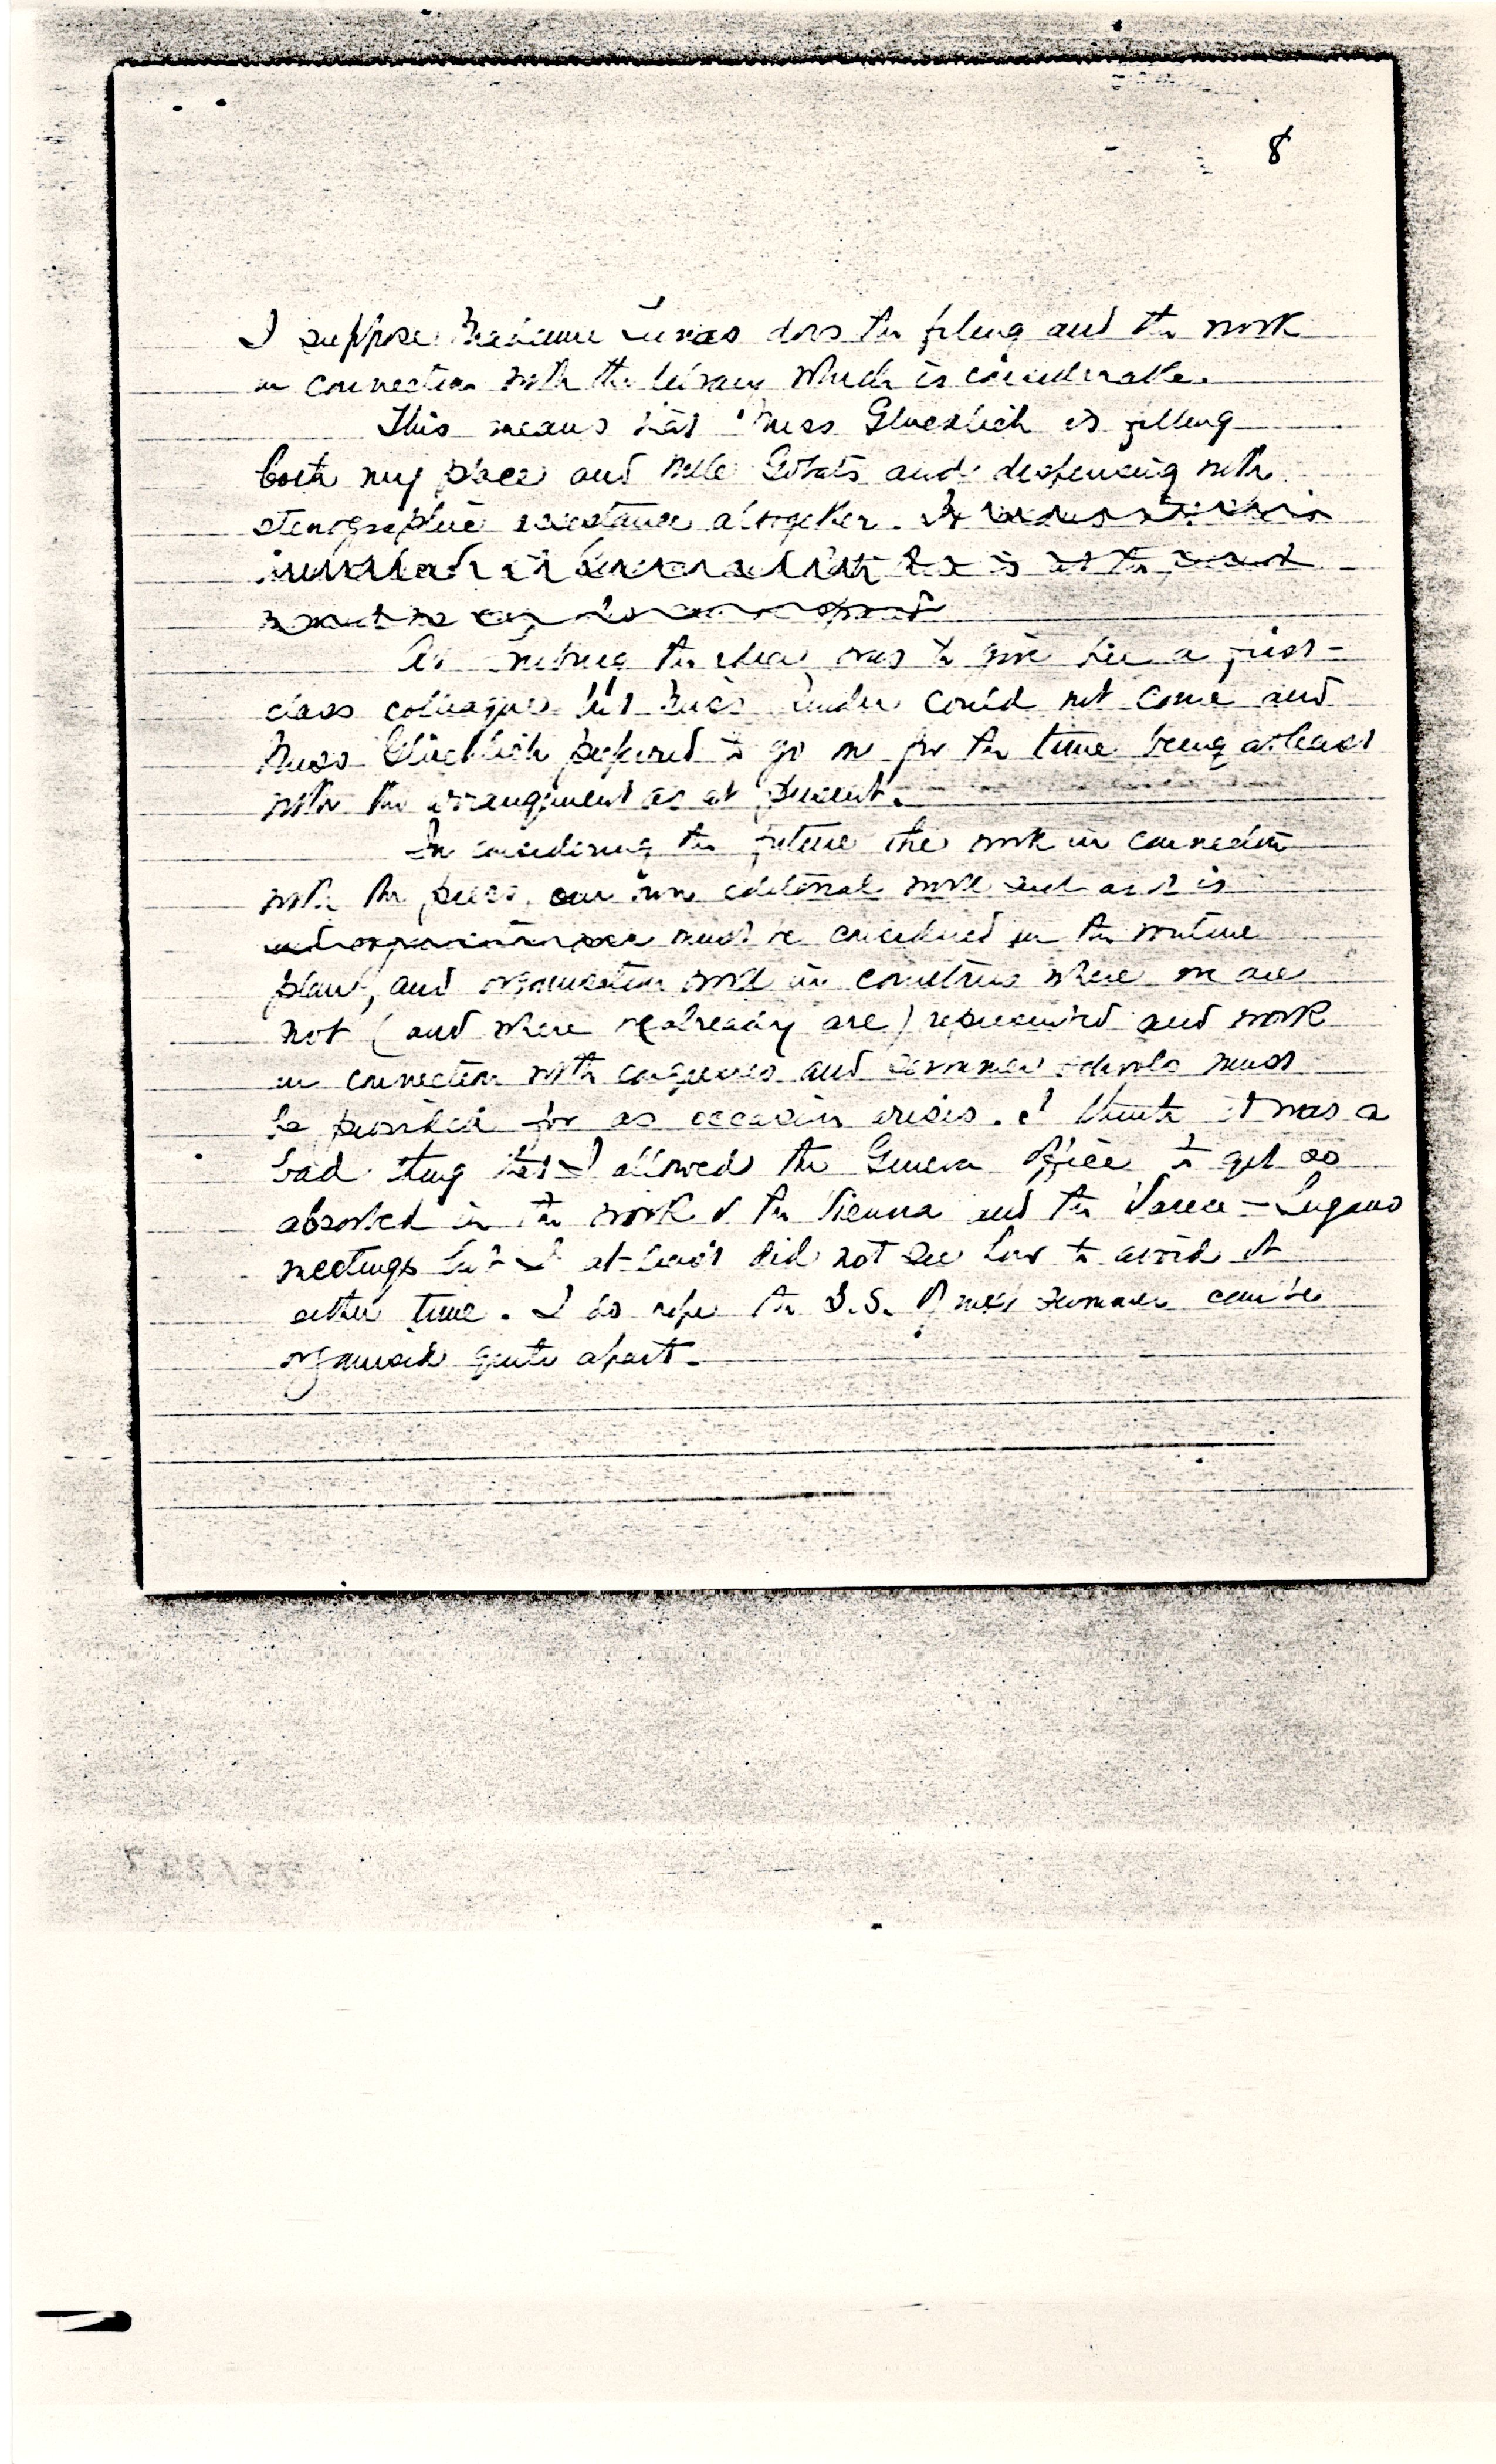 8
I suppose Madame Lucas does the filing and the work
in connection with the library which is considerable.
This means that Miss Glücklich is filling
both my place and Mlle Gobats and dispensing with
stenographic assistance altogether.
is at the
the idea was to give her a first-
class colleague but Miss could not come and
Miss Glücklich prefered to go on for the time being at least
with the arrangement as at present.
In considering the future the work in connection
with the press, our own editorial work such as it is
must be considered in the routine
plan, and organization work in countries where we are
not (and where we already are) represented and work
in connection with congresses and summer schools must
be provided for as occasion arises. I think it was a
bad thing that I allowed the Geneva Office to get so
absorbed in the work of the Vienna and the Varese-Lugano
meetings but I at least did not see how to avoid it
either time. I do hope the S.S. of next summer can be
organized quite apart.